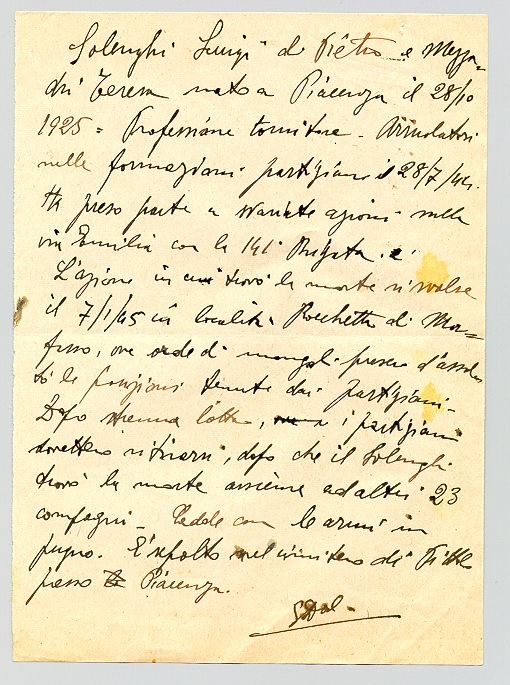 Solenghi Luigi di Pietro e Mezza=
dri Teresa nato a Piacenza il 28/10
1925 = Professione tornitore - Arruolatosi
nelle formazioni partigiane il 28/7/44.
Ha preso parte a svariate azioni sulla
via Emilia con la 141ª Brigata.
L'azione in cui trovò la morte si svolse
il 7/1/45 in località Rocchetta di Mor=
fasso, ove orde di mongoli presero d'assal
to le posizioni tenute dai partigiani -
Dopo strenua lotta, i partigiani
dovettero ritirarsi, dopo che il Solenghi
trovò la morte assieme ad altri 23
compagni - Cadde con le armi in
pugno. È sepolto nel cimitero di
presso Piacenza.